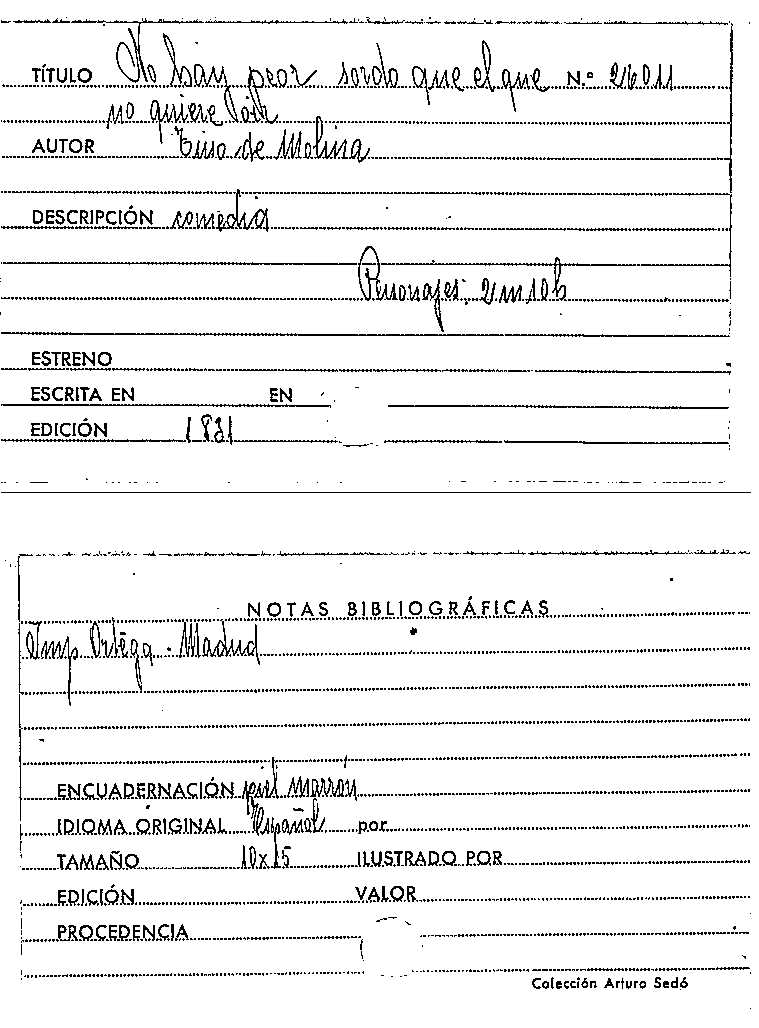 TÍTULO No hay peor sordo que el que N.º 26011
no quiere oir
AUTOR Tirso de Molina
DESCRIPCIÓN comedia
Personajes: 2m10h
ESTRENO
ESCRITA EN EN
EDICIÓN 1831
NOTAS BIBLIOGRÁFICAS
Imp Ortega - Madrid
ENCUADERNACIÓN piel marrón
IDIOMA ORIGINAL Español por
TAMAÑO 10x15 ILUSTRADO POR
EDICIÓN VALOR
PROCEDENCIA
Colección Arturo Sedó